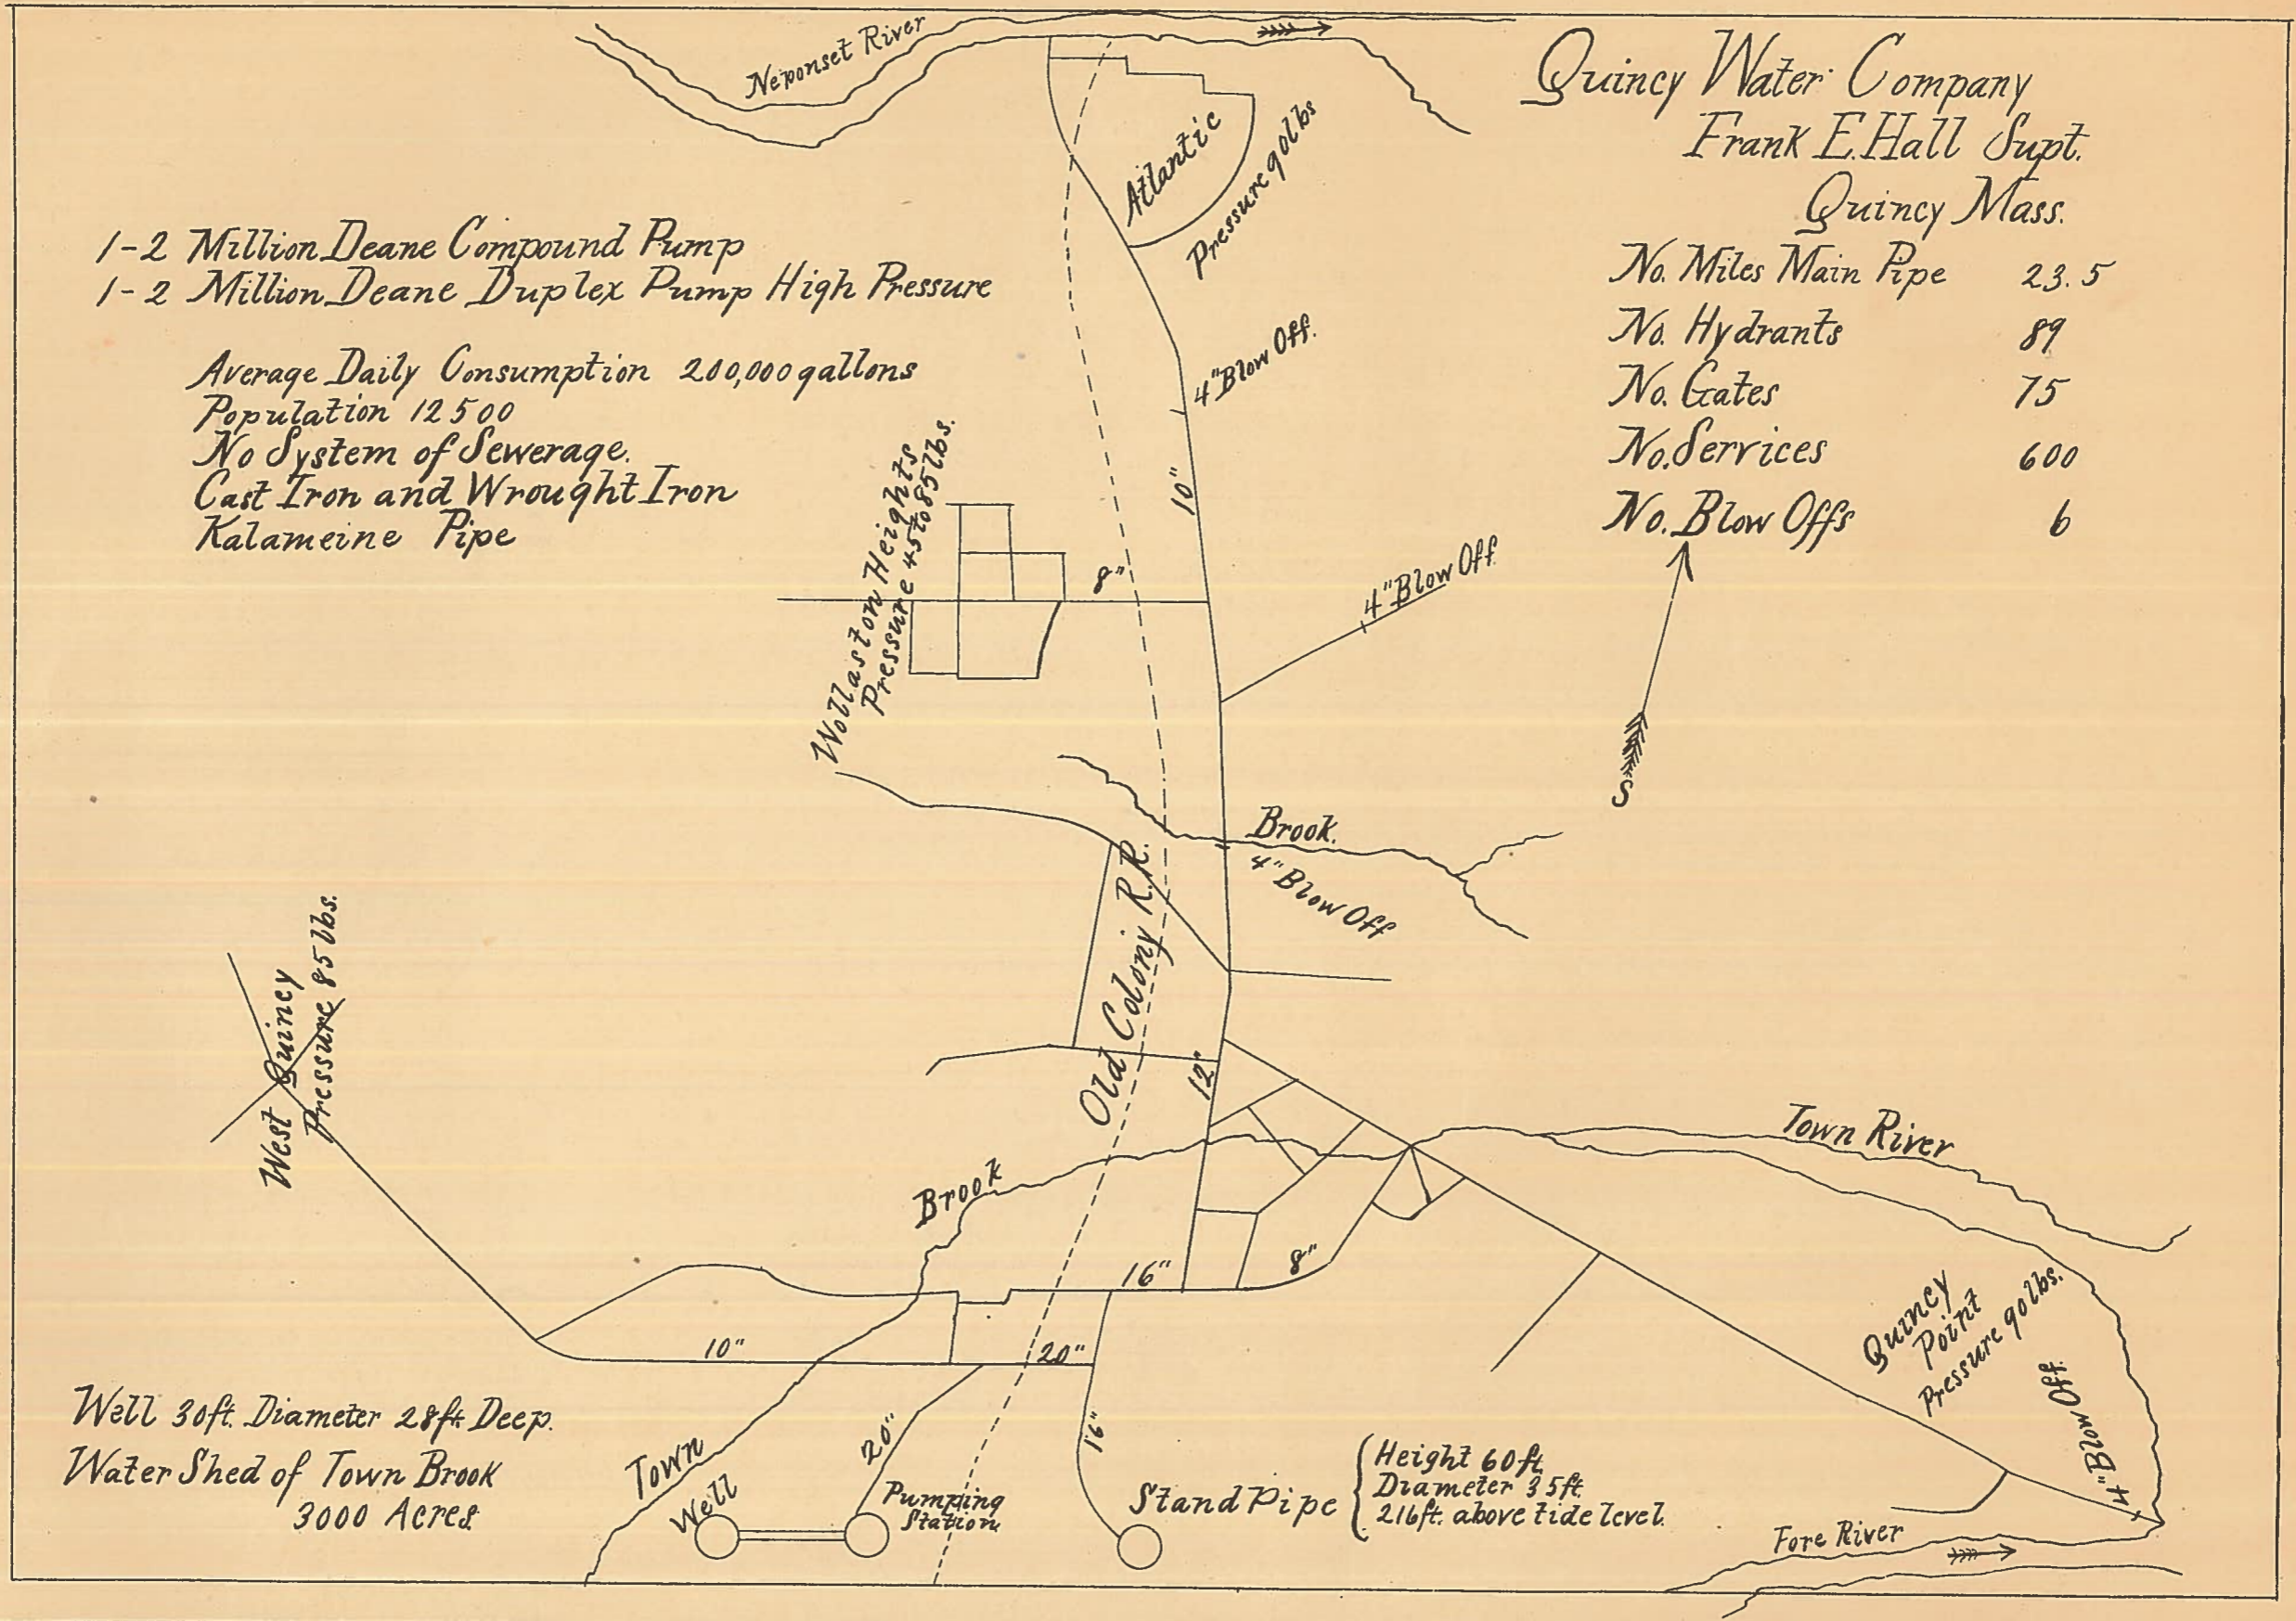 Neponset River
Quincy Water Company
Frank E. Hall Supt.
Quincy Mass.
No. Miles Main Pipe 23.5
No. Hydrants 89
No. Gates 75
No. Services 600
No. Blow Offs 6
S
1-2 Million Deane Compound Pump
1-2 Million Deane Duplex Pump High Pressure
Average Daily Consumption 200,000 gallons
Population 12500
No System of Sewerage.
Cast Iron and Wrought Iron
Kalameine Pipe
Atlantic
Pressure 90lbs
4" Blow Off.
10"
Wollaston Heights
Pressure 45 to 85 lbs.
8"
4" Blow Off
Brook.
4" Blow Off
Old Colony R.R.
West Quincy
Pressure 85 lbs.
12"
Town River
Brook
16"
8"
10"
20"
Quincy
Point
Pressure 90 lbs.
4" Blow Off.
Well 30ft. Diameter 28ft. Deep.
Water Shed of Town Brook
3000 Acres
Town
Well
20"
Pumping
Station
16"
Stand Pipe
Height 60ft.
Diameter 35ft.
216ft. above tide level.
Fore River